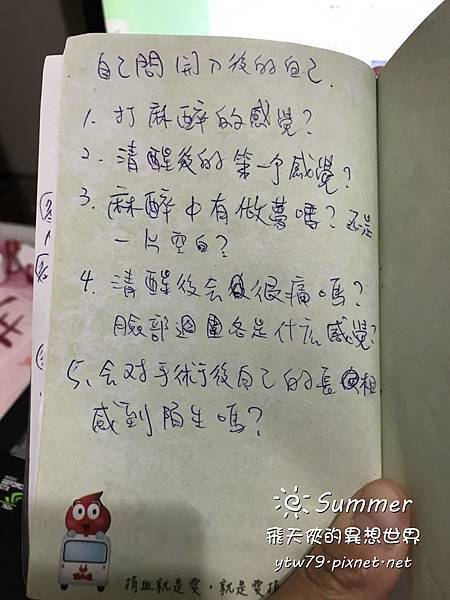 自己問開刀後的自己.
1. 打麻醉的感覺?
2. 清醒後的第一个感覺?
3. 麻醉中有做夢嗎? 还是
一片空白?
4. 清醒後会很痛嗎?
臉部週圍各是什么感覺?
5. 会対手術後自己的長相
感到陌生嗎?
捐血就是愛‧就是要捐
Summer
飛天俠的異想世界
ytw79.pixnet.net